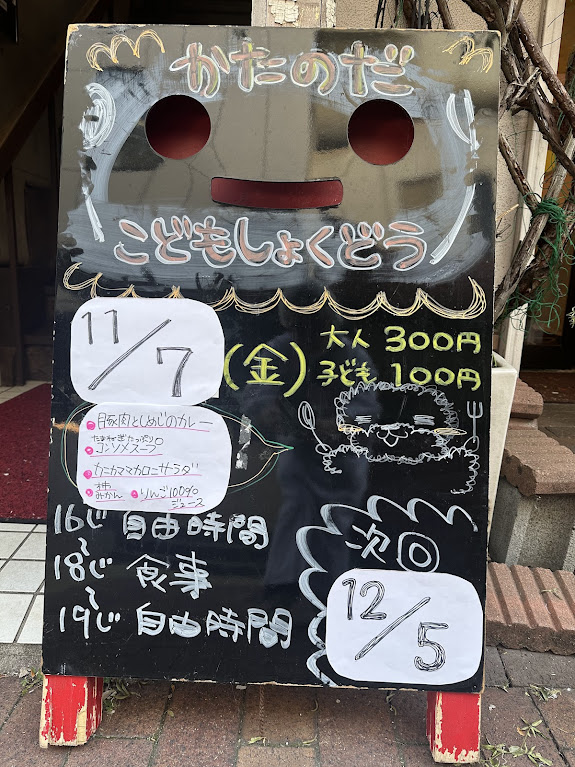 かたのだ
こどもしょくどう
11/7
(金)
大人 300円
子ども 100円
豚肉としめじのカレー
たまねぎたっぷり
コンソメスープ
カニカママカロニサラダ
みかん
りんご100%
ジュース
16じ 自由時間
〜
18じ 食事
〜
19じ 自由時間
次回
12/5